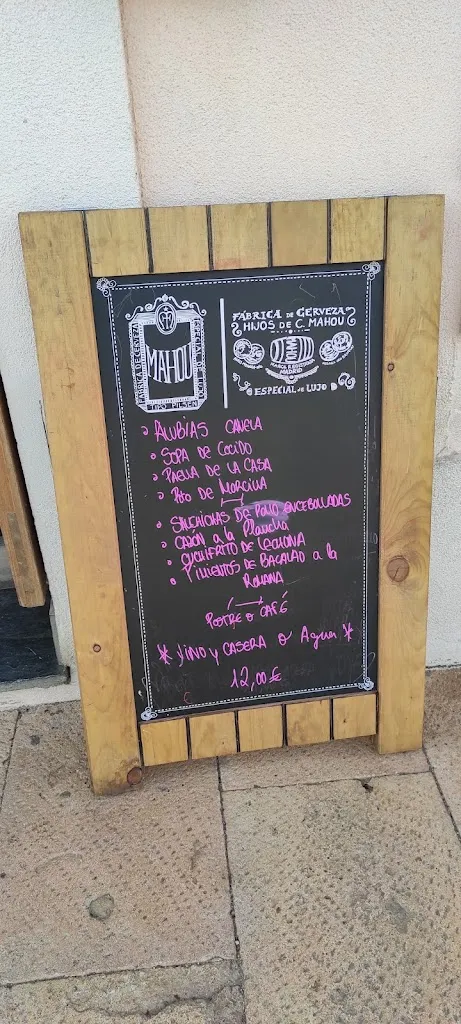 FÁBRICA DE CERVEZA
MAHOU
TIPO PILSEN
FÁBRICA DE CERVEZA
HIJOS DE C. MAHOU
MADRID
ESPECIAL DE LUJO
ALUBIAS CANELA
SOPA DE COCIDO
PAELLA DE LA CASA
PISTO DE MORCILLA
SALCHICHAS DE POLLO ENCEBOLLADAS
CAZÓN a la Plancha
CUCHIFRITO DE LECHONA
PIMIENTOS DE BACALAO a la
ROMANA
POSTRE O CAFÉ
* VINO y CASERA O Agua *
12,00€